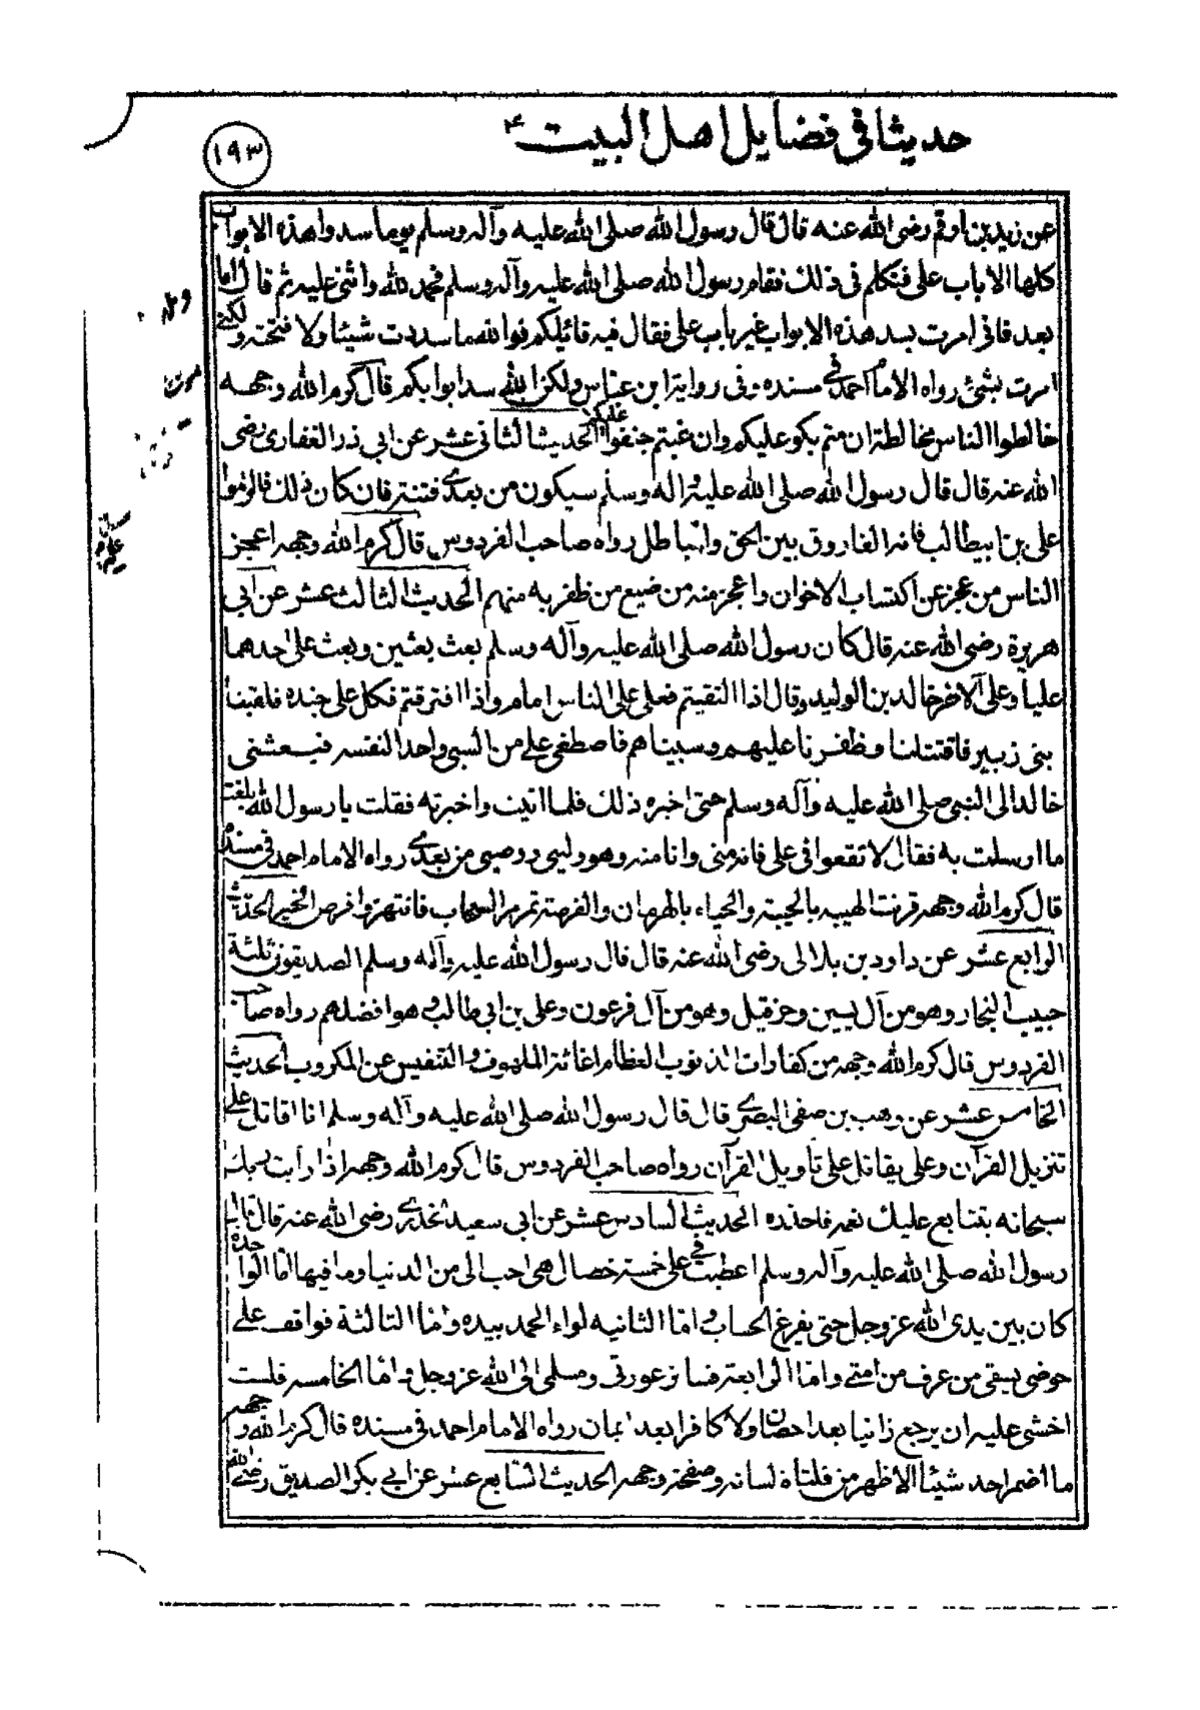 حديثا في فضايل اهل البيت
١٩٣
عن زيد بن ارقم رضي الله عنه قال قال رسول الله صلى الله عليه وآله وسلم يوما سدوا هذه الابواب
كلها الا باب على فتكلم في ذلك فقام رسول الله صلى الله عليه وآله وسلم فحمد لله واثنى عليه ثم قال اما
بعد فانى امرت بسد هذه الابواب غير باب على فقال فيه قائلكم فوالله ما سددت شيئا ولا فتحته ولكني
امرت بشئ رواه الامام احمد في مسنده وفي رواية ابن عباس ولكن الله سد ابوابكم قال كرم الله وجهه
خالطوا الناس مخالطة ان متم بكو عليكم وان غبتم حنوا عليكم الحديث الثاني عشر عن ابي ذر الغفاري رضى
الله عنه قال قال رسول الله صلى الله عليه واله وسلم سيكون من بعدي فتنة فان كان ذلك فالزموا
على بن ابيطالب فانه الفاروق بين الحق والباطل رواه صاحب الفردوس قال كرم الله وجهه اعجز
الناس من عجز عن اكتساب الاخوان واعجز منه من ضيع من ظفر به منهم الحديث الثالث عشر عن ابي
هريرة رضي الله عنه قال كان رسول الله صلى الله عليه وآله وسلم بعث بعثين وبعث على احدهما
عليا وعلى الاخر خالد بن الوليد وقال اذا التقيتم فعلى على الناس امام واذا افترقتم فكل على جنده فلقينا
بنى زبير فاقتتلنا وظفرنا عليهم وسبيناهم فاصطفى على من السبى واحدا لنفسه فبعثنى
خالد الى النبي صلى الله عليه وآله وسلم حتى اخبره ذلك فلما اتيت واخبرته فقلت يا رسول الله بلغت
ما ارسلت به فقال لا تقعوا في على فانه منى وانا منه وهو وليى ووصيى من بعدي رواه الامام احمد في مسنده
قال كرم الله وجهه قرنت الهيبه بالخيبة والحياء بالحرمان والفرصة تمر مر السحاب فانتهزوا فرص الخير الحديث
الرابع عشر عن داود بن بلال رضي الله عنه قال قال رسول الله عليه وآله وسلم الصديقون ثلثة
حبيب النجار وهو من آل يسين وحزقيل وهو من آل فرعون وعلى بن ابي طالب وهو افضلهم رواه صاحب
الفردوس قال كرم الله وجهه من كفارات الذنوب العظام اغاثة الملهوف والتنفيس عن المكروب الحديث
الخامس عشر عن وهب بن صفى البصري قال قال رسول الله صلى الله عليه وآله وسلم انا اقاتل على
تنزيل القرآن وعلى يقاتل على تأويل القرآن رواه صاحب الفردوس قال كرم الله وجهه اذا رأيت ربك
سبحانه يتتابع عليك نعمه فاحذره الحديث السادس عشر عن ابي سعيد الخدري رضي الله عنه قال قال
رسول الله صلى الله عليه وآله وسلم اعطيت في على خمسة خصال هي احب الي من الدنيا وما فيها اما الواحدة
كان بين يدى الله عز وجل حتى يفرغ الحساب واما الثانيه لواء الحمد بيده واما الثالثة فواقف على
حوضى يسقى من عرف من امتى واما الرابعة فساتر عورتى ومسلمى الى الله عز وجل واما الخامسه فلست
اخشى عليه ان يرجع زانيا بعد احصان ولا كافرا بعد ايمان رواه الامام احمد في مسنده قال كرم الله وجهه
ما اضمر احد شيئا الا ظهر من فلتاة لسانه وصفحة وجهه الحديث السابع عشر عن ابي بكر الصديق رضي الله